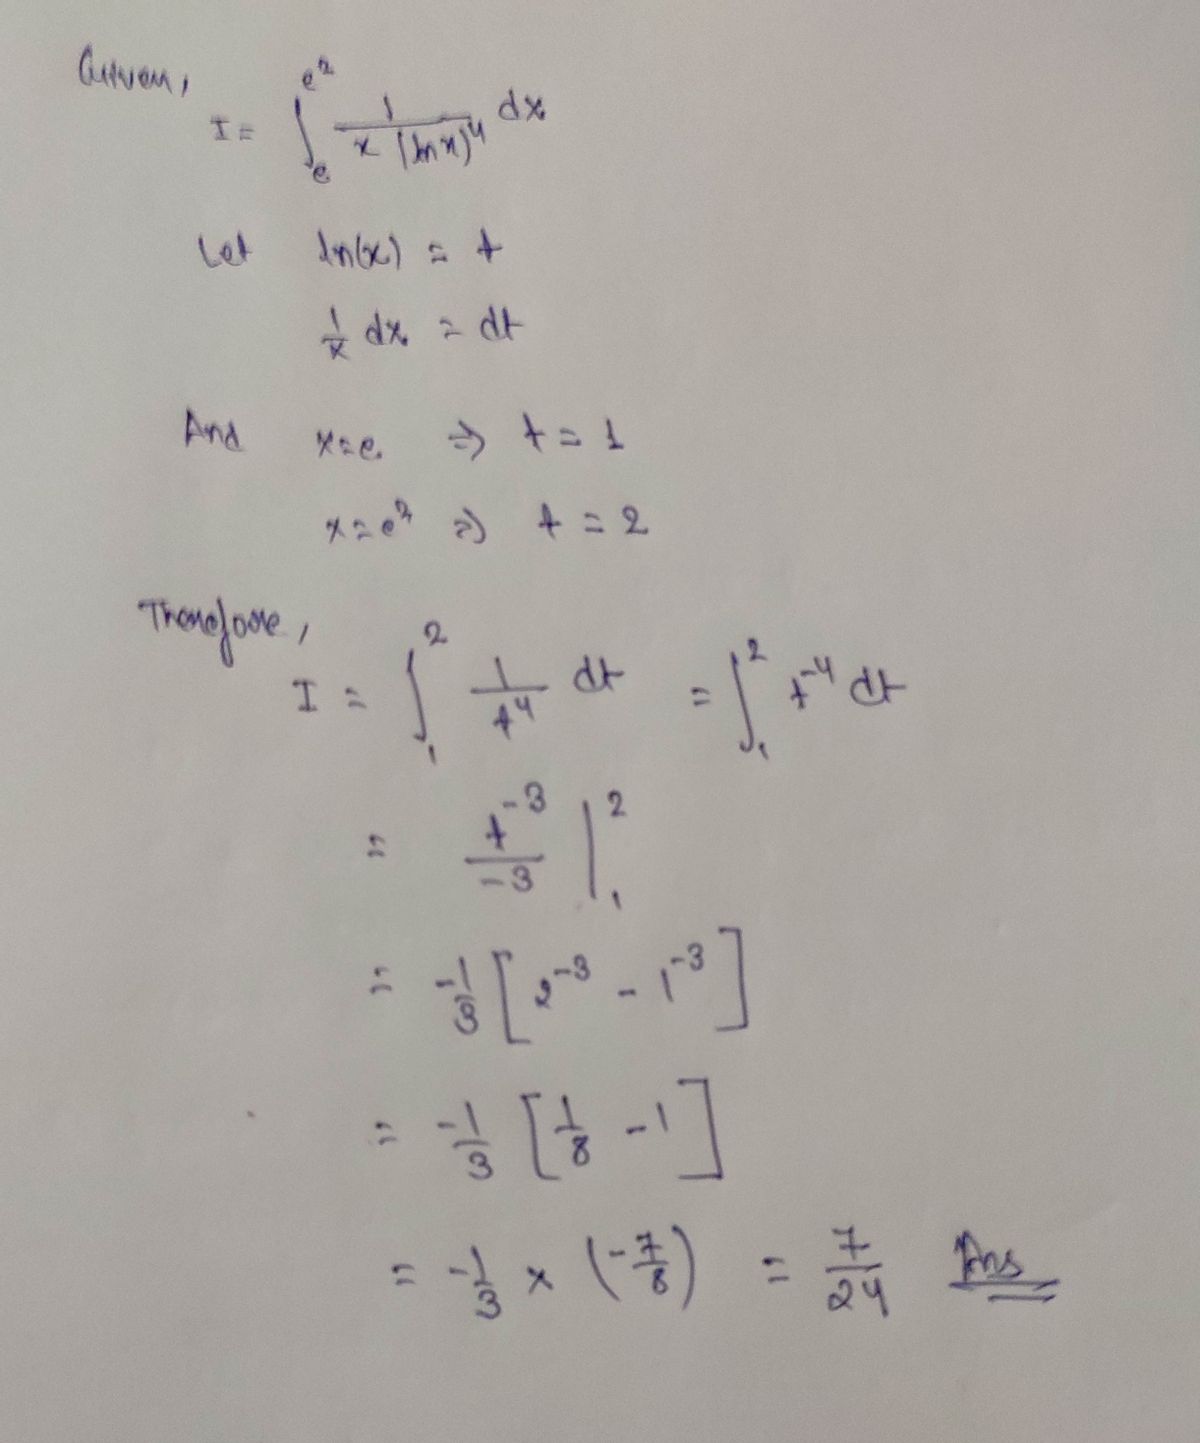 Given,
I = ∫_e^{e^2} 1/(x (ln x)^4) dx
Let ln(x) = t
1/x dx = dt
And x=e ⇒ t = 1
x=e^2 ⇒ t = 2
Therefore,
I = ∫_1^2 1/t^4 dt = ∫_1^2 t^{-4} dt
= t^{-3}/-3 |_1^2
= -1/3 [2^{-3} - 1^{-3}]
= -1/3 [1/8 - 1]
= -1/3 × (-7/8) = 7/24 Ans